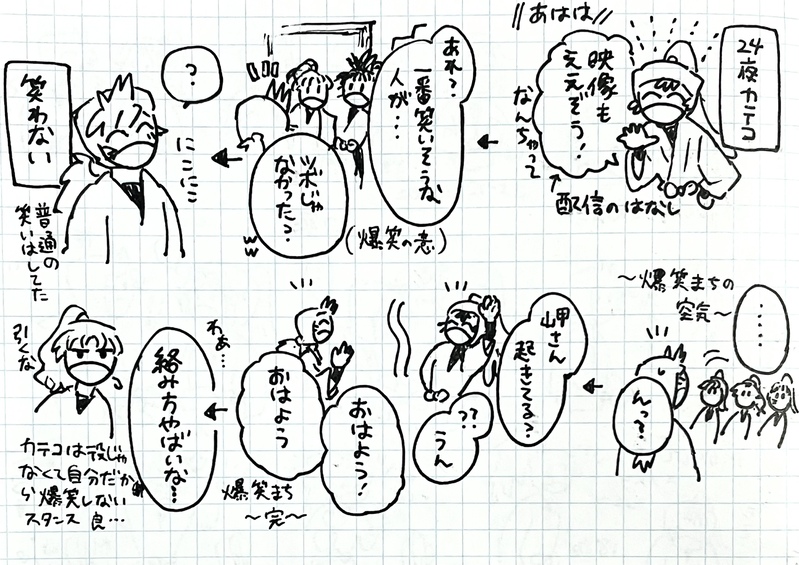 24夜カテコ
\\あははは//
映像も
ええぞう!
なんちゃって
配信のはなし
あれ?
一番笑いそうな
人が…
ツボじゃ
なかった?
ww
(爆笑の意)
?
にこにこ
笑わない
普通の
笑いはしてた
〜爆笑まちの
空気〜
……
んっ?
岬さん
起きてる?
??
うん
おはよう!
おはよう
爆笑まち
〜完〜
わぁ…
絡み方やばいな…
引くな
カテコは役じゃ
なくて自分だか
ら爆笑しない
スタンス 良…